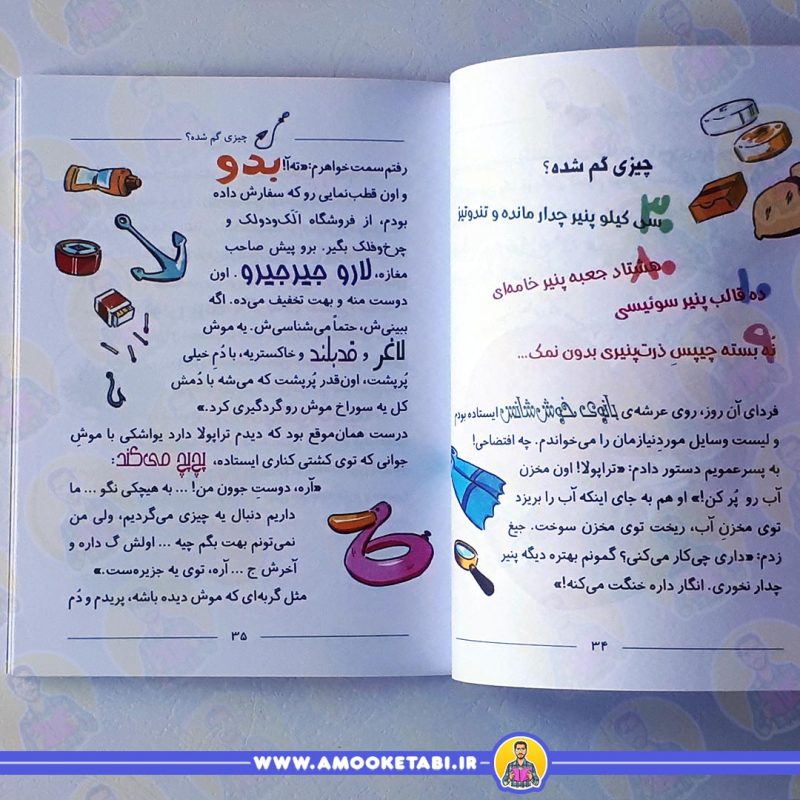 چیزی گم شده؟
۳۰ سی کیلو پنیر چدار مانده و تندوتیز
۸۰ هشتاد جعبه پنیر خامه‌ای
۱۰ ده قالب پنیر سوئیسی
۹ نُه بسته چیپس ذرت‌پنیری بدون نمک...
فردای آن روز، روی عرشه‌ی بانوی خوش‌شانس ایستاده بودم
و لیست وسایل موردنیازمان را می‌خواندم. چه افتضاحی!
به پسرعمویم دستور دادم: «تراپولا! اون مخزن
آب رو پُر کن!» او هم به جای اینکه آب را بریزد
توی مخزنِ آب، ریخت توی مخزن سوخت. جیغ
زدم: «داری چی‌کار می‌کنی؟ گمونم بهتره دیگه پنیر
چدار نخوری. انگار داره خنگت می‌کنه!»
۳۴
چیزی گم شده؟
رفتم سمت خواهرم: «ته‌آ! بدو
و اون قطب‌نمایی رو که سفارش داده
بودم، از فروشگاه الَک‌ودولک و
چرخ‌وفلک بگیر. برو پیش صاحب
مغازه، لارو جیرجیرو. اون
دوست منه و بهت تخفیف می‌ده. اگه
ببینی‌ش، حتماً می‌شناسی‌ش. یه موش
لاغر و قدبلند و خاکستریه، با دُمِ خیلی
پُرپشت، اون‌قدر پُرپشت که می‌شه با دُمش
کل یه سوراخ موش رو گردگیری کرد.»
درست همان‌موقع بود که دیدم تراپولا دارد یواشکی با موشِ
جوانی که توی کشتی کناری ایستاده، پچ‌پچ می‌کند:
«آره، دوستِ جوون من! ... به هیچکی نگو ... ما
داریم دنبال یه چیزی می‌گردیم، ولی من
نمی‌تونم بهت بگم چیه ... اولش گ داره و
آخرش ج ... آره، توی یه جزیره‌ست.»
مثل گربه‌ای که موش دیده باشه، پریدم و دُم
۳۵
WWW.AMOOKETABI.IR